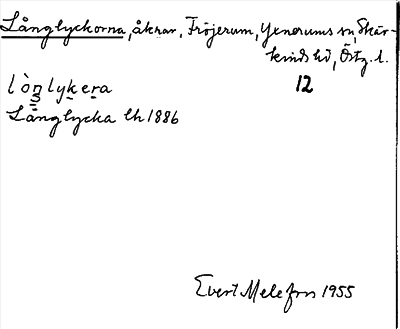 Långlyckorna, åkrar, Fröjerum, Yxnerums sn, Skär-
kinds hd, Östg. l.
lòŋlykera 12
Långlycka lh 1886
Evert Melefors 1955